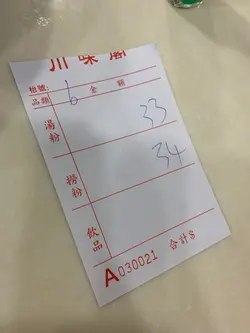 川味閣
檯號: 6
品類 金額
湯粉 33
撈粉 34
飲品
A030021 合計$